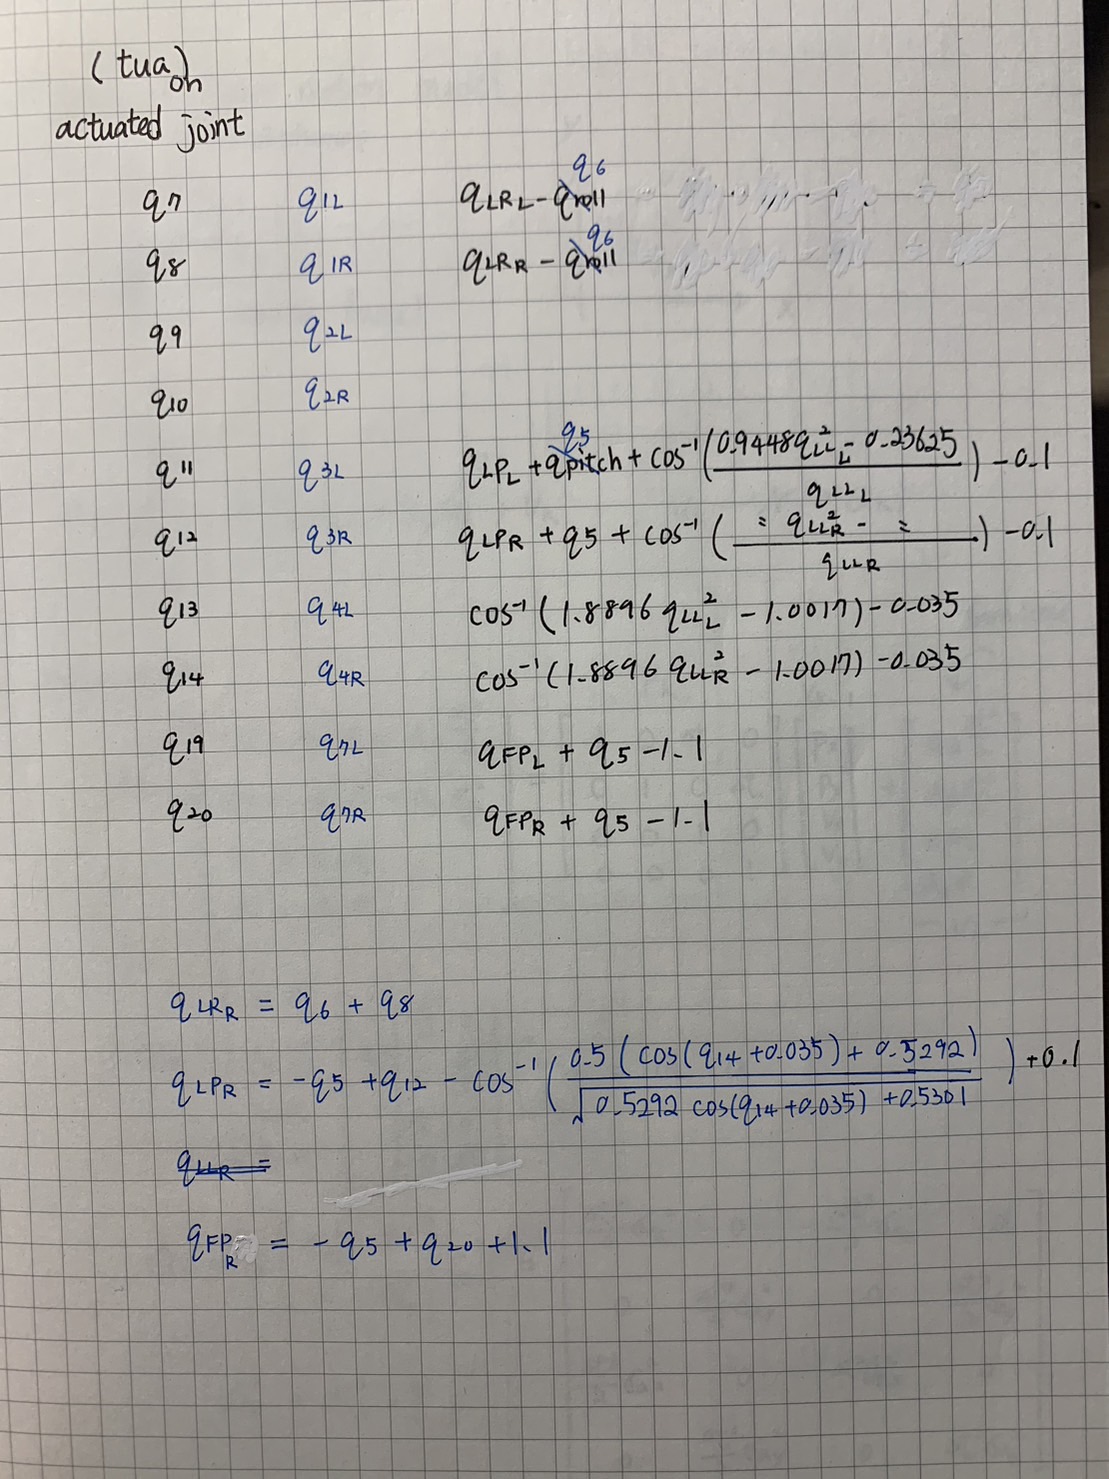 (tua) on
actuated joint
q7 q1L qLRL - qroll q6
q8 q1R qLRR - qroll q6
q9 q2L
q10 q2R
q11 q3L qLPL + qpitch q5 + cos⁻¹(0.9448qLL²L - 0.23625 / qLLL) - 0.1
q12 q3R qLPR + q5 + cos⁻¹( = qLL²R - = / qLLR) - 0.1
q13 q4L cos⁻¹(1.8896 qLL²L - 1.0017) - 0.035
q14 q4R cos⁻¹(1.8896 qLL²R - 1.0017) - 0.035
q19 q7L qFPL + q5 - 1.1
q20 q7R qFPR + q5 - 1.1
qLRR = q6 + q8
qLPR = -q5 + q12 - cos⁻¹(0.5(cos(q14+0.035) + 0.5292) / √0.5292 cos(q14+0.035) + 0.5301) + 0.1
qLLR =
qFPR = -q5 + q20 + 1.1